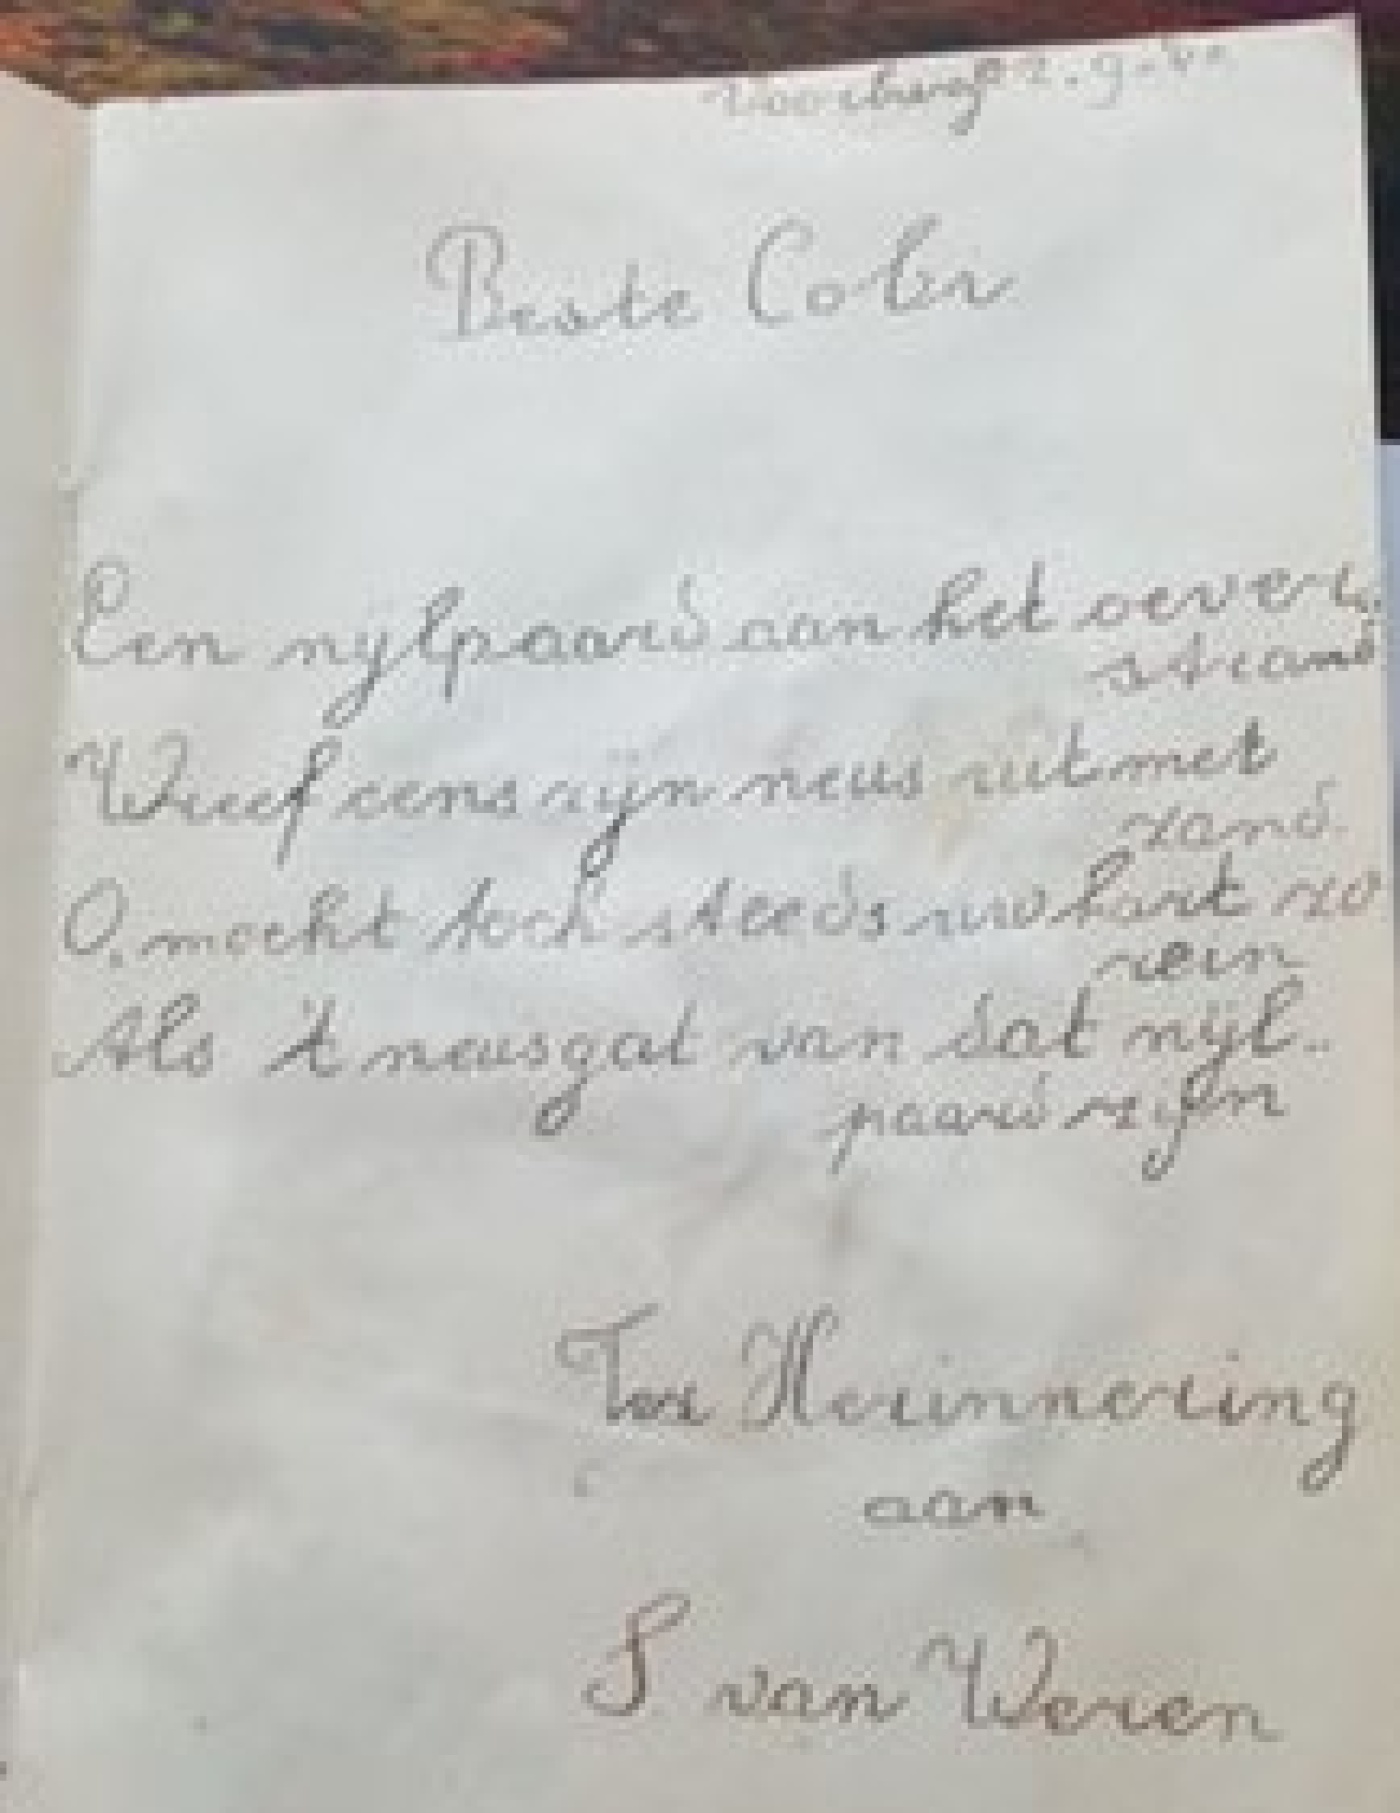 Voorburg 2-9-4
Beste Cobi
Een nijlpaard aan het oever-
strand
Wreef eens zijn neus uit met
zand.
O, mocht toch steeds uw hart zo
rein
Als 't neusgat van dat nijl-
paard zijn
Ter Herinnering
aan
S. van Weren